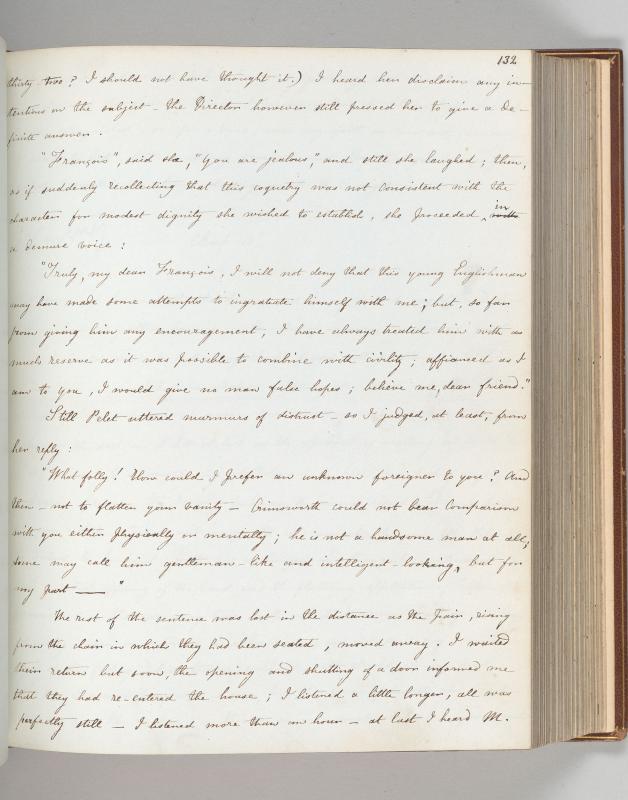 132
thirty-two? I should not have thought it.) I heard her disclaim any in-
tentions on the subject - the Director however still pressed her to give a de-
finite answer.
"François", said she, "you are jealous," and still she laughed; then,
as if suddenly recollecting that this coquetry was not consistent with the
character for modest dignity she wished to establish, she proceeded, in with
a demure voice:
"Truly, my dear François, I will not deny that this young Englishman
may have made some attempts to ingratiate himself with me; but, so far
from giving him any encouragement, I have always treated him with as
much reserve as it was possible to combine with civility; affianced as I
am to you, I would give no man false hopes; believe me, dear friend."
Still Pelet uttered murmurs of distrust - so I judged, at least, from
her reply:
"What folly! How could I prefer an unknown foreigner to you? And
then - not to flatter your vanity - Crimsworth could not bear comparison
with you either physically or mentally; he is not a handsome man at all;
some may call him gentleman-like and intelligent-looking, but for
my part —— "
The rest of the sentence was lost in the distance as the pair, rising
from the chair in which they had been seated, moved away. I waited
their return but soon, the opening and shutting of a door informed me
that they had re-entered the house; I listened a little longer, all was
perfectly still - I listened more than an hour - at last I heard M.